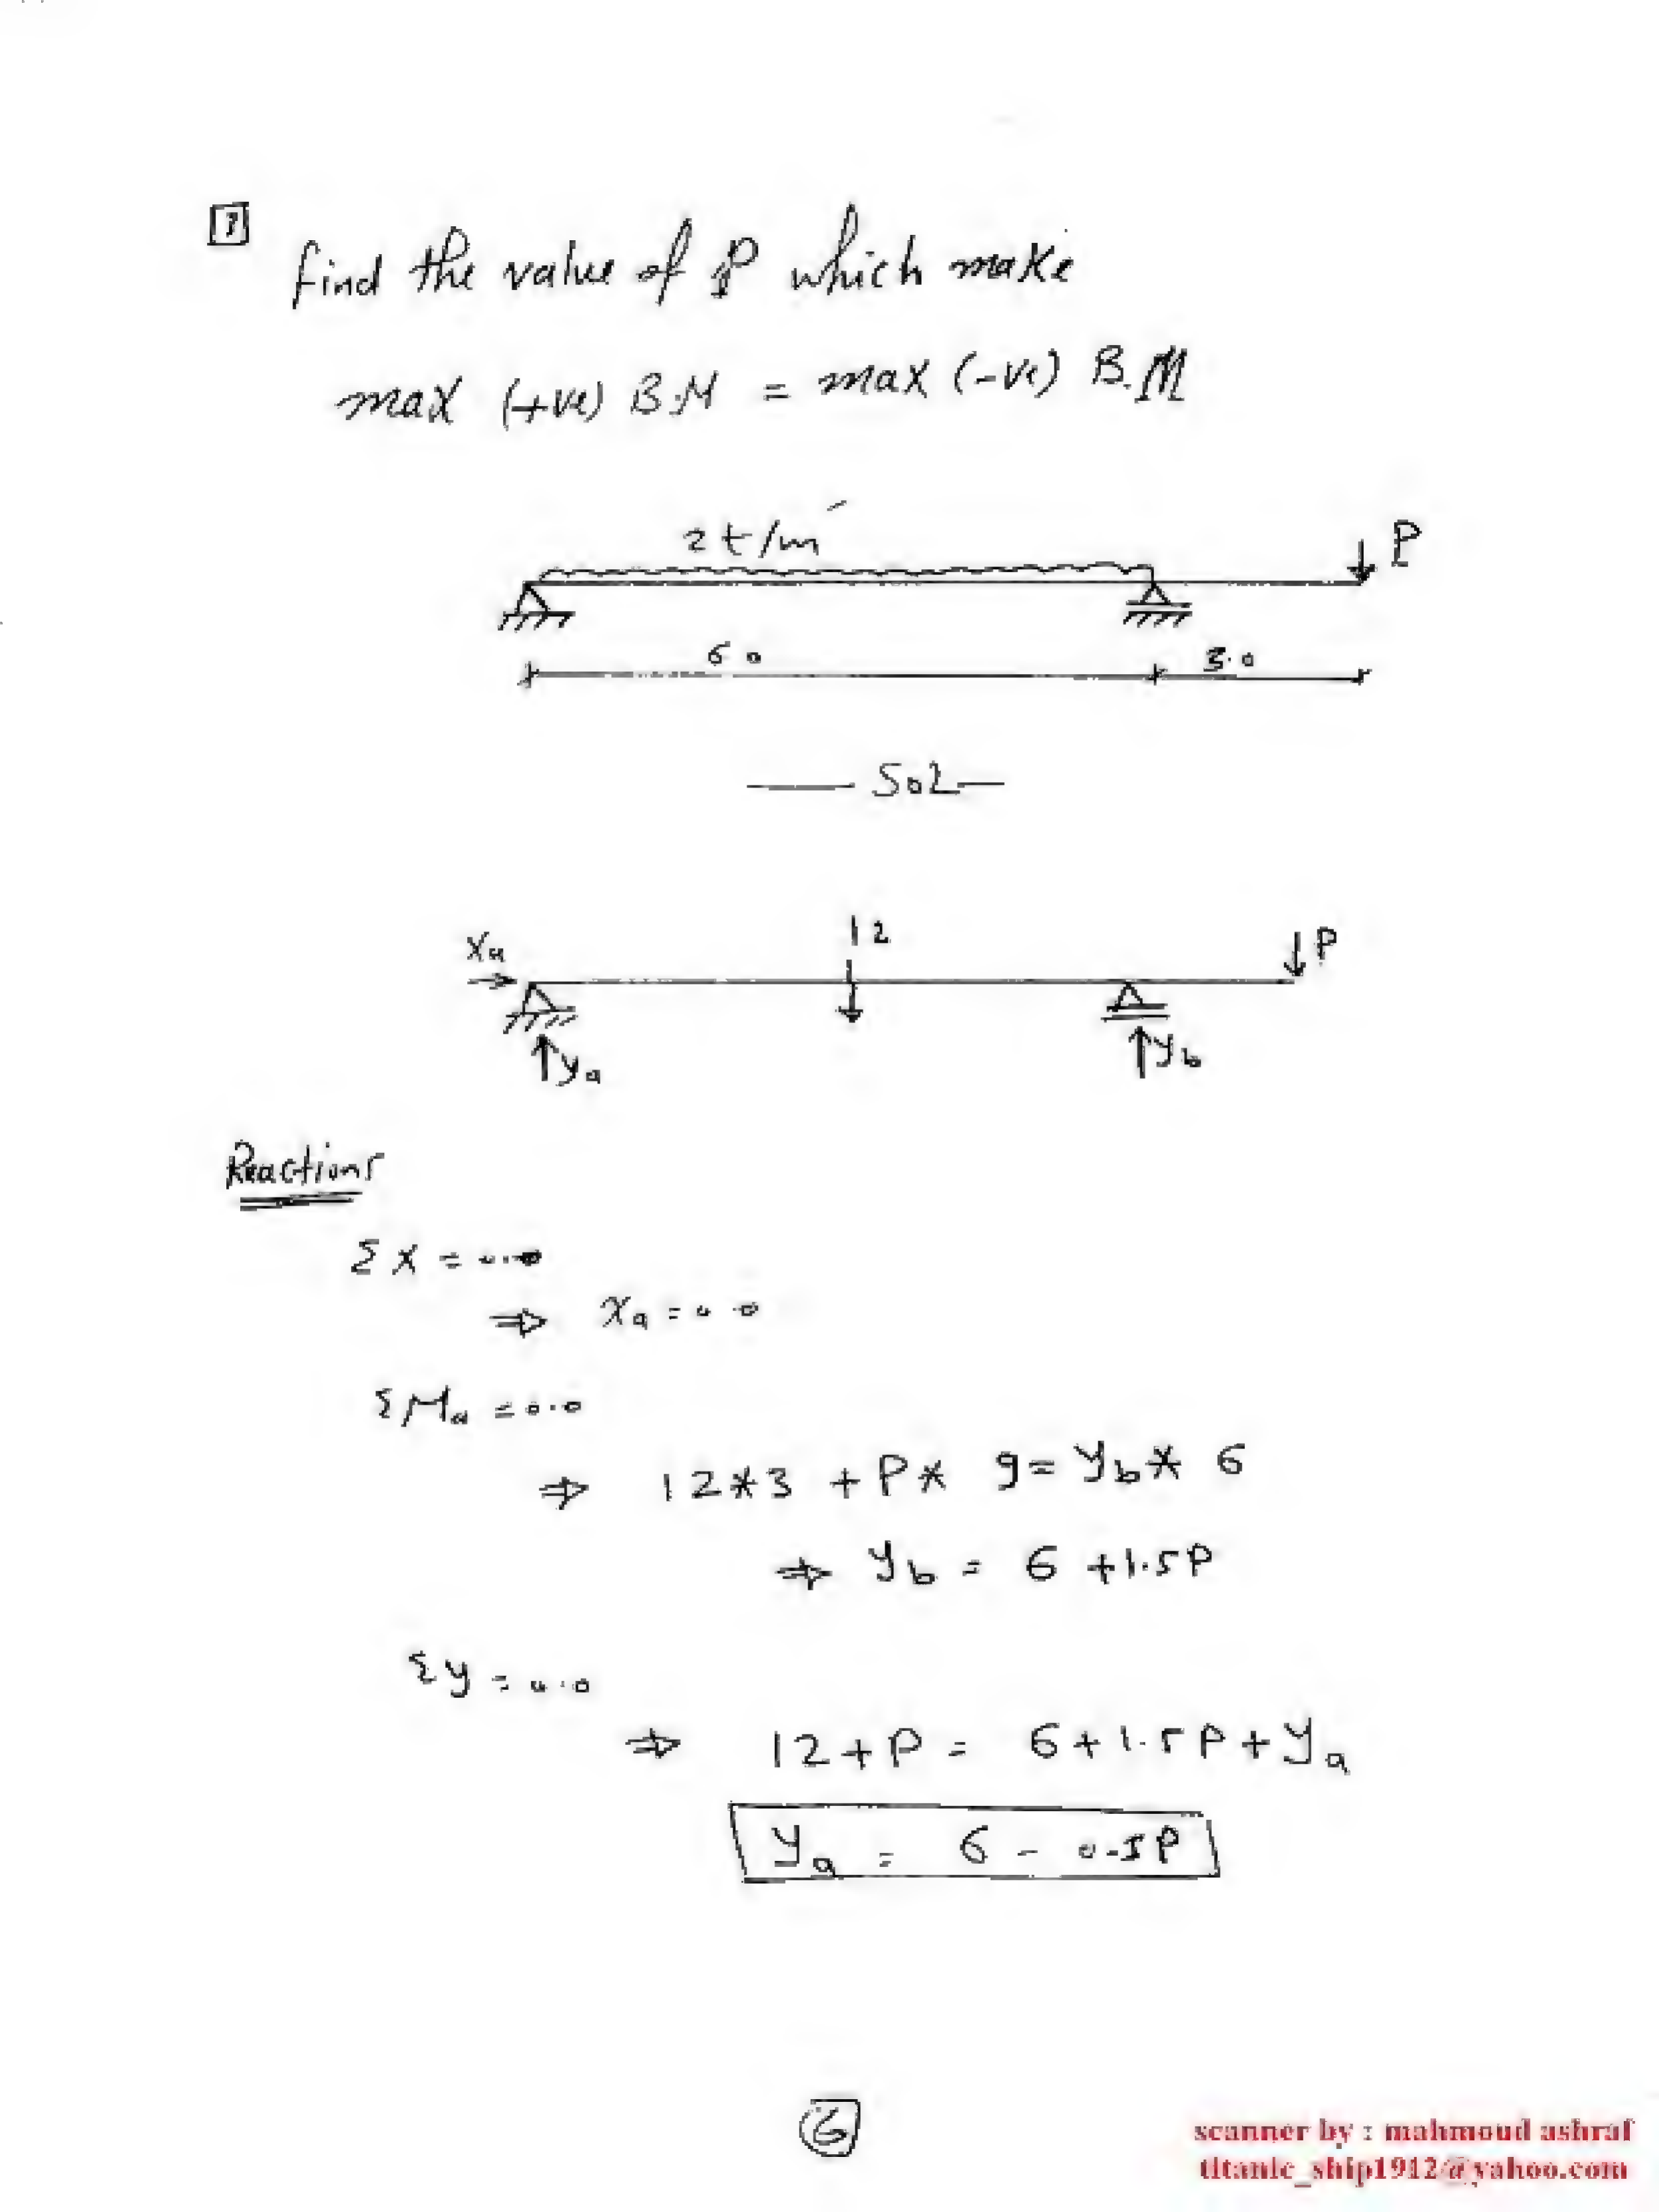 find the value of P which make
max (+ve) B.M = max (-ve) B.M
2 t/m
P
6.0
3.0
Sol
12
Xa
P
Ya
Yb
Reactions
Σ X = 0.0
⇒ Xa = 0.0
Σ Ma = 0.0
⇒ 12*3 + P* 9 = Yb* 6
⇒ Yb = 6 + 1.5P
Σ y = 0.0
⇒ 12 + P = 6 + 1.5P + Ya
Ya = 6 - 0.5P
6
scanner by : mahmoud ashraf
titanic_ship1912@yahoo.com